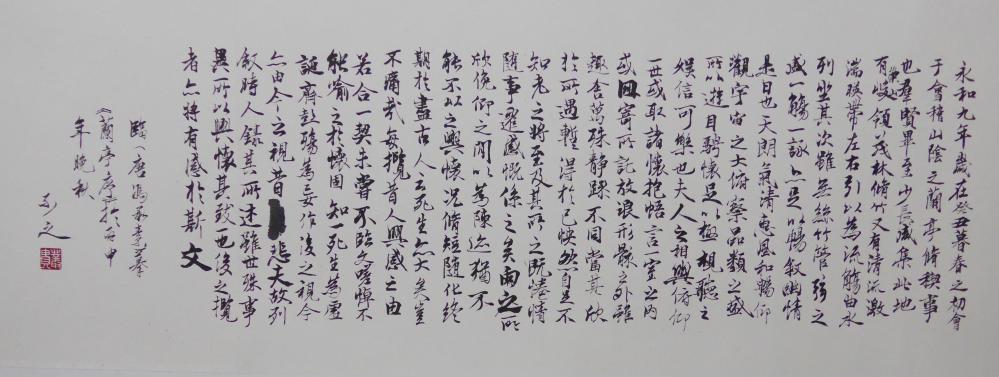 永和九年歲在癸丑暮春之初會
于會稽山陰之蘭亭脩稧事
也羣賢畢至少長咸集此地
有峻領茂林脩竹又有清流激
湍暎帶左右引以為流觴曲水
列坐其次雖無絲竹管弦之
盛一觴一詠亦足以暢敘幽情
是日也天朗氣清惠風和暢仰
觀宇宙之大俯察品類之盛
所以遊目騁懷足以極視聽之
娛信可樂也夫人之相與俯仰
一世或取諸懷抱悟言一室之內
或因寄所託放浪形骸之外雖
趣舍萬殊靜躁不同當其欣
於所遇暫得於己怏然自足不
知老之將至及其所之既惓情
隨事遷感慨係之矣向之所
欣俛仰之間以為陳迹猶不
能不以之興懷況脩短隨化終
期於盡古人云死生亦大矣豈
不痛哉每攬昔人興感之由
若合一契未嘗不臨文嗟悼不
能喻之於懷固知一死生為虛
誕齊彭殤為妄作後之視今
亦由今之視昔悲夫故列
敘時人錄其所述雖世殊事
異所以興懷其致一也後之攬
者亦將有感於斯文
臨（唐馮承素摹
《蘭亭序》於丙申
年晚秋